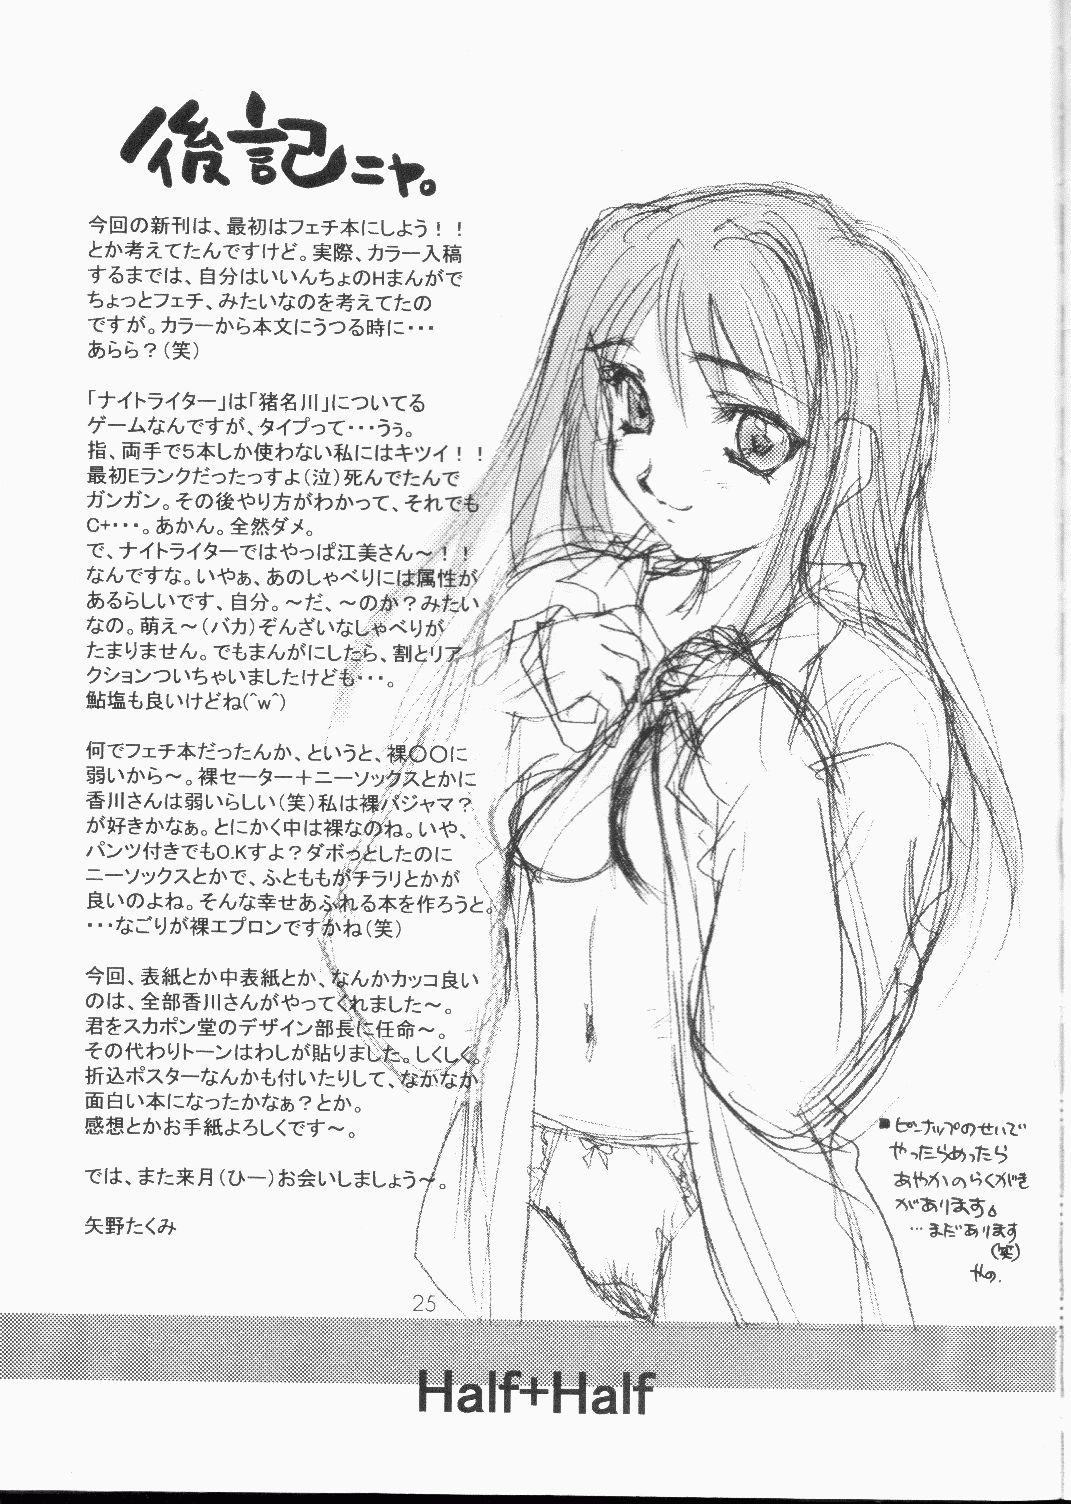 後記ニャ。
今回の新刊は、最初はフェチ本にしよう！！
とか考えてたんですけど。実際、カラー入稿
するまでは、自分はいいんちょのHまんがで
ちょっとフェチ、みたいなのを考えてたの
ですが。カラーから本文にうつる時に・・・
あらら？（笑）
「ナイトライター」は「猪名川」についてる
ゲームなんですが、タイプって・・・うぅ。
指、両手で５本しか使わない私にはキツイ！！
最初Eランクだったっすよ（泣）死んでたんで
ガンガン。その後やり方がわかって、それでも
C+・・・。あかん。全然ダメ。
で、ナイトライターではやっぱ江美さん～！！
なんですな。いやぁ、あのしゃべりには属性が
あるらしいです、自分。～だ、～のか？みたい
なの。萌え～（バカ）ぞんざいなしゃべりが
たまりません。でもまんがにしたら、割とリア
クションついちゃいましたけども・・・。
鮎塩も良いけどね(^w^)
何でフェチ本だったんか、というと、裸〇〇に
弱いから～。裸セーター＋ニーソックスとかに
香川さんは弱いらしい（笑）私は裸パジャマ？
が好きかなぁ。とにかく中は裸なのね。いや、
パンツ付きでもO.Kすよ？ダボっとしたのに
ニーソックスとかで、ふとももがチラリとかが
良いのよね。そんな幸せあふれる本を作ろうと。
・・・なごりが裸エプロンですかね（笑）
今回、表紙とか中表紙とか、なんかカッコ良い
のは、全部香川さんがやってくれました～。
君をスカポン堂のデザイン部長に任命～。
その代わりトーンはわしが貼りました。しくしく。
折込ポスターなんかも付いたりして、なかなか
面白い本になったかなぁ？とか。
感想とかお手紙よろしくです～。
では、また来月（ひー）お会いしましょう～。
矢野たくみ
■ピンナップのせいで
やったらめったら
あやかのらくがき
があります。
…まだあります
（笑）
やの.
25
Half+Half